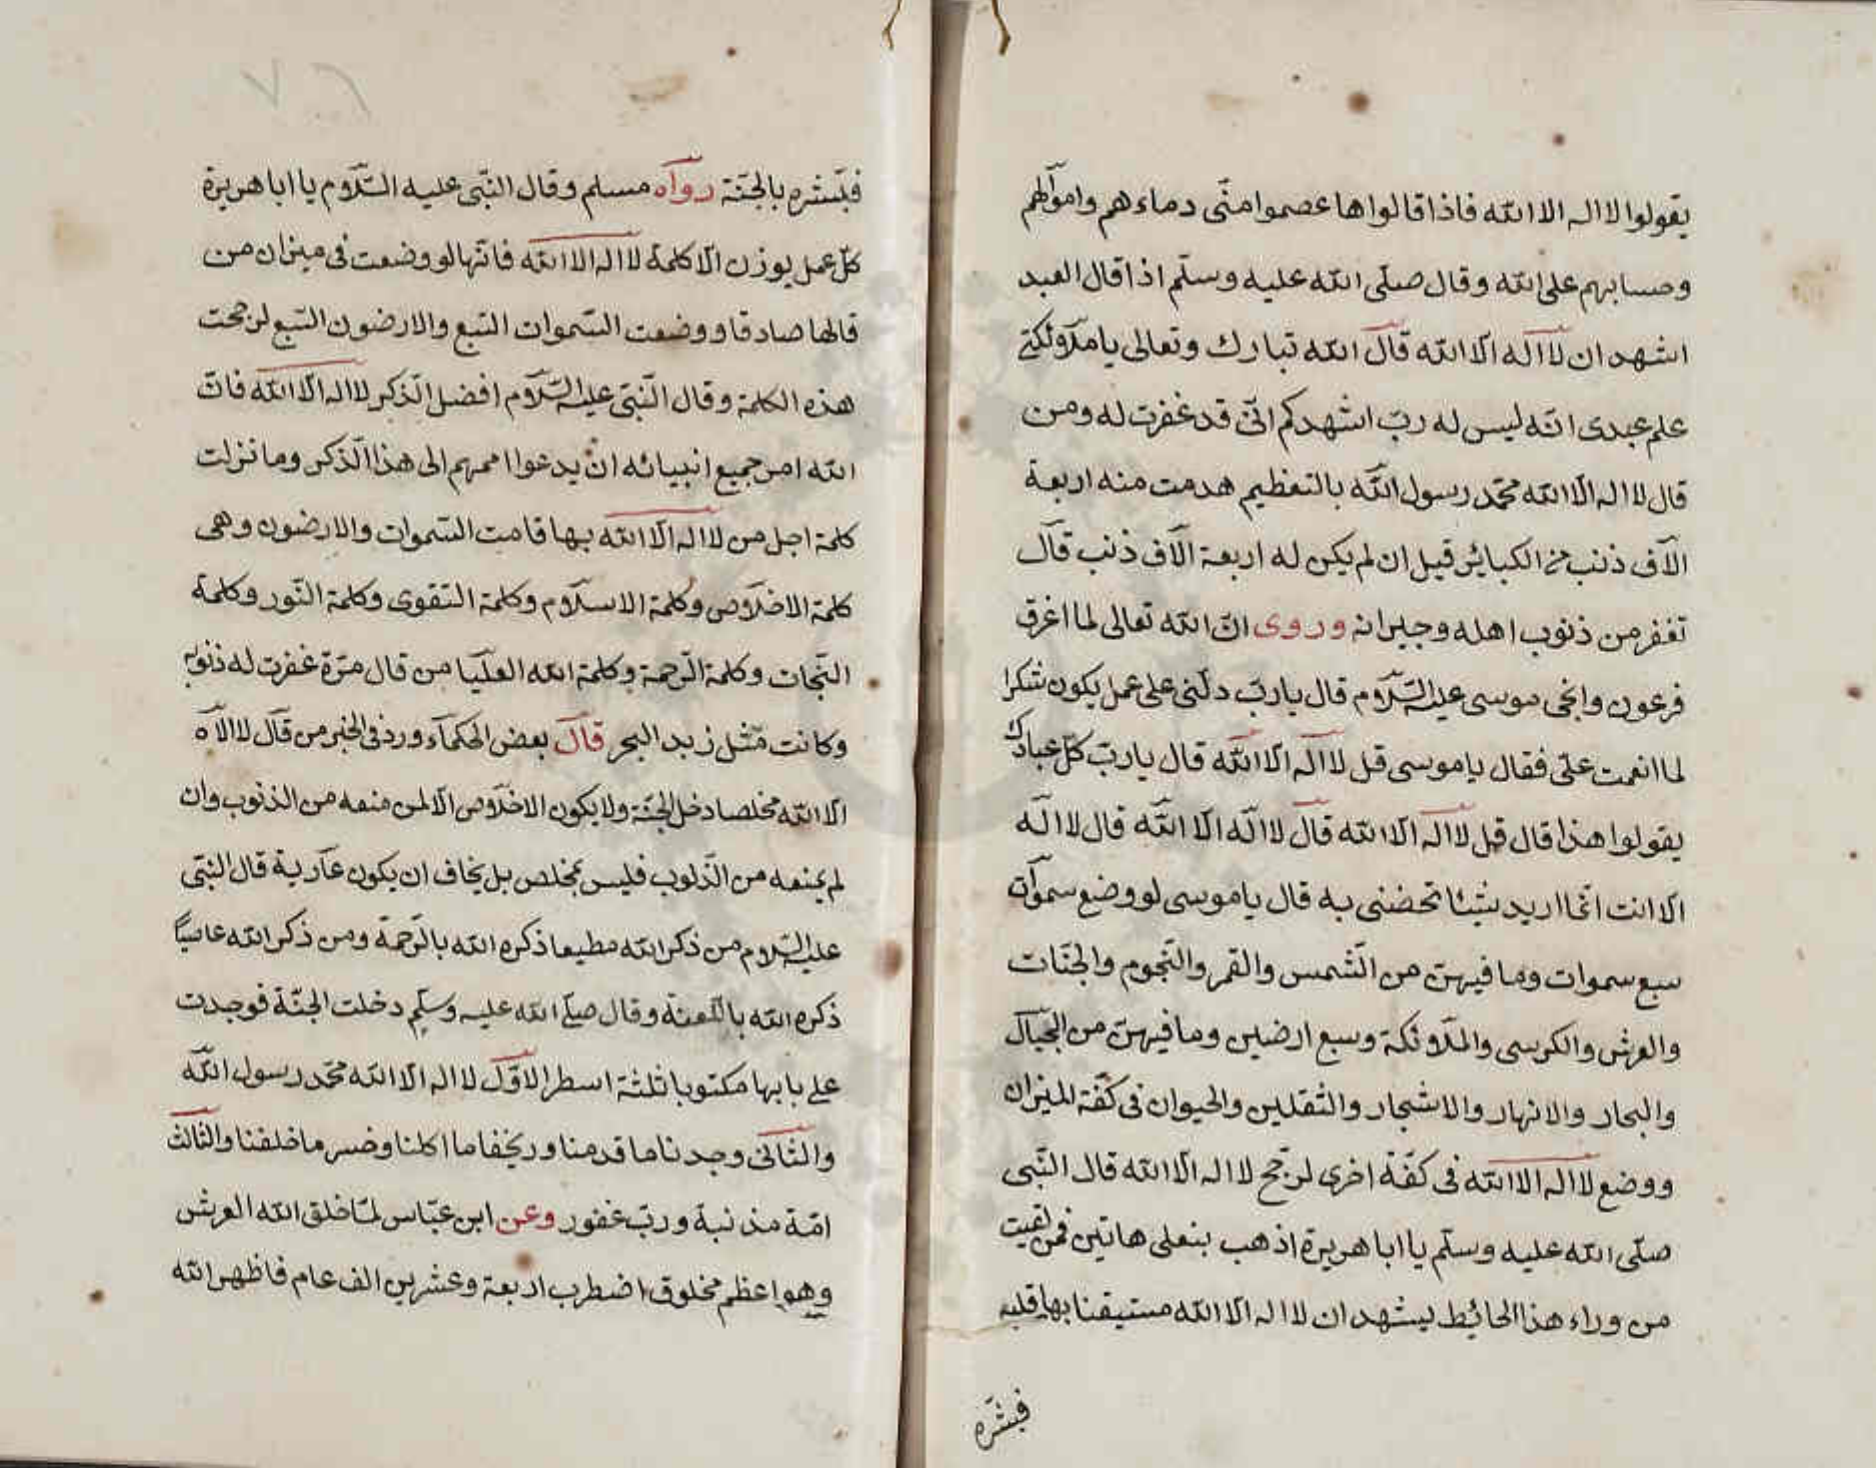 يقولوا لا اله الا الله فاذا قالوا ها عصموا منّى دماءهم واموآلهم
وحسابهم على الله وقال صلّى الله عليه وسلّم اذا قال العبد
اشهد ان لا آله الّا الله قآل الله تبارك وتعالى يا ملآئكتى
علم عبدى انّه ليس له ربّ اشهدكم انّى قد غفرت له ومن
قال لا اله الّا الله محمّد رسول الله بالتعظيم هدمت منه اربعة
الآف ذنب من الكبائر قيل ان لم يكن له اربعة الآف ذنب قآل
تغفر من ذنوب اهله وجيرانه وروى انّ الله تعالى لما اغرق
فرعون وانجى موسى عليه السّلآم قال يا ربّ دلّنى على عمل يكون شكرا
لما انعمت علىّ فقال يا موسى قل لا آله الّا الله قال يا ربّ كلّ عبادك
يقولوا هذا قال قل لا اله الّا الله قآل لا الٓه الّا الله قال لا الٓه
الّا انت انّما اريد شيئا تخصنى به قال يا موسى لو وضع سموآت
سبع سموات وما فيهنّ من الشّمس والقمر والنّجوم والجنّات
والعرش والكرسى والملآئكة وسبع ارضين وما فيهنّ من الجبآل
والبحار والانهار والاشجار والثقلين والحيوان فى كفّة الميزان
ووضع لا اله الا الله فى كفّة اخرى لرجّح لا اله الّا الله قال النّبى
صلّى الله عليه وسلّم يا ابا هريرة اذهب بنعلى هاتين فمن لقيت
من وراء هذا الحائط يشهد ان لا اله الّا الله مستيقنا بها قلبه
فبشّره
٢٧
فبّشره بالجنّة روآه مسلم وقال النّبى عليه السّلآم يا ابا هريرة
كلّ عمل يوزن الّا كلمة لا اله الا الله فانّها لو وضعت فى ميزان من
قالها صادقا و وضعت السّموات السّبع والارضون السّبع لرجحت
هذه الكلمة وقال النّبى عليه السّلآم افضل الذّكر لا اله الّا الله فانّ
الله امر جميع انبيائه ان يدعوا اممهم الى هذا الذّكر وما نزلت
كلمة اجل من لا اله الّا الله بها قامت السّموات والارضون وهى
كلمة الاخلآص وكلمة الاسلآم وكلمة التقوى وكلمة النّور وكلمة
النّجات وكلمة الرّحمة وكلمة الله العليا من قال مرّة غفرت له ذنوبه
وكانت مثل زبد البحر قآل بعض الحكمآء ورد فى الخبر من قآل لا الآه
الّا الله مخلصا دخل الجنّة ولا يكون الاخلآص الّا لمن منعه من الذنوب وان
لم يمنعه من الذّنوب فليس بمخلص بل يخاف ان يكون عآرية قال النّبى
عليه السّلام من ذكر الله مطيعا ذكره الله بالرّحمة ومن ذكر الله عاصيًا
ذكره الله باللّعنة وقال صلّى الله عليه وسلّم دخلت الجنّة فوجدت
على بابها مكتوبا ثلثة اسطر الاوّل لا اله الّا الله محمّد رسول الله
والثّانى وجدنا ما قدمنا وربحنا ما اكلنا وخسر ما خلفنا والثّالث
امّة مذنبة وربّ غفور وعن ابن عبّاس لمّا خلق الله العرش
وهو اعظم مخلوق اضطرب اربعة وعشرين الف عام فاظهر الله